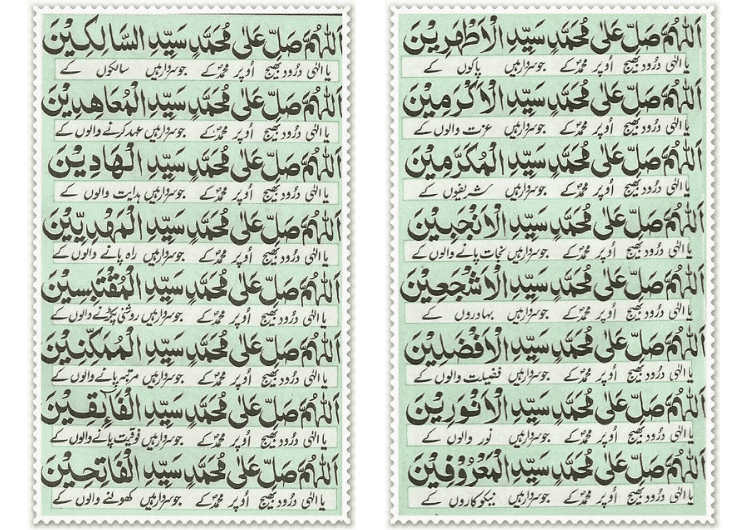 اَللّٰهُمَّ صَلِّ عَلٰى مُحَمَّدٍ سَيِّدِ الْاَطْهَرِيْنَ
یا الٰہی درُود بھیج اُوپر محمدؐ کے جو سردار ہیں پاکوں کے
اَللّٰهُمَّ صَلِّ عَلٰى مُحَمَّدٍ سَيِّدِ الْاَكْرَمِيْنَ
یا الٰہی درُود بھیج اُوپر محمدؐ کے جو سردار ہیں عزت والوں کے
اَللّٰهُمَّ صَلِّ عَلٰى مُحَمَّدٍ سَيِّدِ الْمُكَرَّمِيْنَ
یا الٰہی درُود بھیج اُوپر محمدؐ کے جو سردار ہیں شریفوں کے
اَللّٰهُمَّ صَلِّ عَلٰى مُحَمَّدٍ سَيِّدِ الْاَنْجَبِيْنَ
یا الٰہی درُود بھیج اُوپر محمدؐ کے جو سردار ہیں نجات پانے والوں کے
اَللّٰهُمَّ صَلِّ عَلٰى مُحَمَّدٍ سَيِّدِ الْاَشْجَعِيْنَ
یا الٰہی درُود بھیج اُوپر محمدؐ کے جو سردار ہیں بہادروں کے
اَللّٰهُمَّ صَلِّ عَلٰى مُحَمَّدٍ سَيِّدِ الْاَفْضَلِيْنَ
یا الٰہی درُود بھیج اُوپر محمدؐ کے جو سردار ہیں فضیلت والوں کے
اَللّٰهُمَّ صَلِّ عَلٰى مُحَمَّدٍ سَيِّدِ الْاَنْوَرِيْنَ
یا الٰہی درُود بھیج اُوپر محمدؐ کے جو سردار ہیں نور والوں کے
اَللّٰهُمَّ صَلِّ عَلٰى مُحَمَّدٍ سَيِّدِ الْمَعْرُوْفِيْنَ
یا الٰہی درُود بھیج اُوپر محمدؐ کے جو سردار ہیں نیکوکاروں کے
اَللّٰهُمَّ صَلِّ عَلٰى مُحَمَّدٍ سَيِّدِ السَّالِكِيْنَ
یا الٰہی درُود بھیج اُوپر محمدؐ کے جو سردار ہیں سالکوں کے
اَللّٰهُمَّ صَلِّ عَلٰى مُحَمَّدٍ سَيِّدِ الْمُعَاهِدِيْنَ
یا الٰہی درُود بھیج اُوپر محمدؐ کے جو سردار ہیں عہد کرنے والوں کے
اَللّٰهُمَّ صَلِّ عَلٰى مُحَمَّدٍ سَيِّدِ الْهَادِيْنَ
یا الٰہی درُود بھیج اُوپر محمدؐ کے جو سردار ہیں ہدایت والوں کے
اَللّٰهُمَّ صَلِّ عَلٰى مُحَمَّدٍ سَيِّدِ الْمَهْدِيِّيْنَ
یا الٰہی درُود بھیج اُوپر محمدؐ کے جو سردار ہیں راہ پانے والوں کے
اَللّٰهُمَّ صَلِّ عَلٰى مُحَمَّدٍ سَيِّدِ الْمُقْتَبِسِيْنَ
یا الٰہی درُود بھیج اُوپر محمدؐ کے جو سردار ہیں روشنی پکڑنے والوں کے
اَللّٰهُمَّ صَلِّ عَلٰى مُحَمَّدٍ سَيِّدِ الْمُمَكَّنِيْنَ
یا الٰہی درُود بھیج اُوپر محمدؐ کے جو سردار ہیں مرتبہ پانے والوں کے
اَللّٰهُمَّ صَلِّ عَلٰى مُحَمَّدٍ سَيِّدِ الْفَآئِقِيْنَ
یا الٰہی درُود بھیج اُوپر محمدؐ کے جو سردار ہیں فوقیت پانے والوں کے
اَللّٰهُمَّ صَلِّ عَلٰى مُحَمَّدٍ سَيِّدِ الْفَاتِحِيْنَ
یا الٰہی درُود بھیج اُوپر محمدؐ کے جو سردار ہیں کھولنے والوں کے